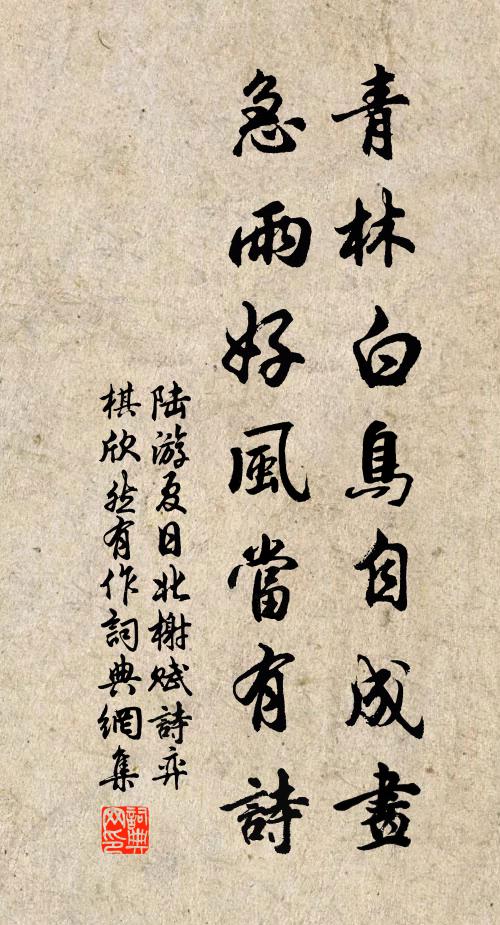 青林白鳥自成畫
急雨好風當有詩
陸游夏日北榭賦詩弈
棋欣然有作詞典網集
詞典
网印